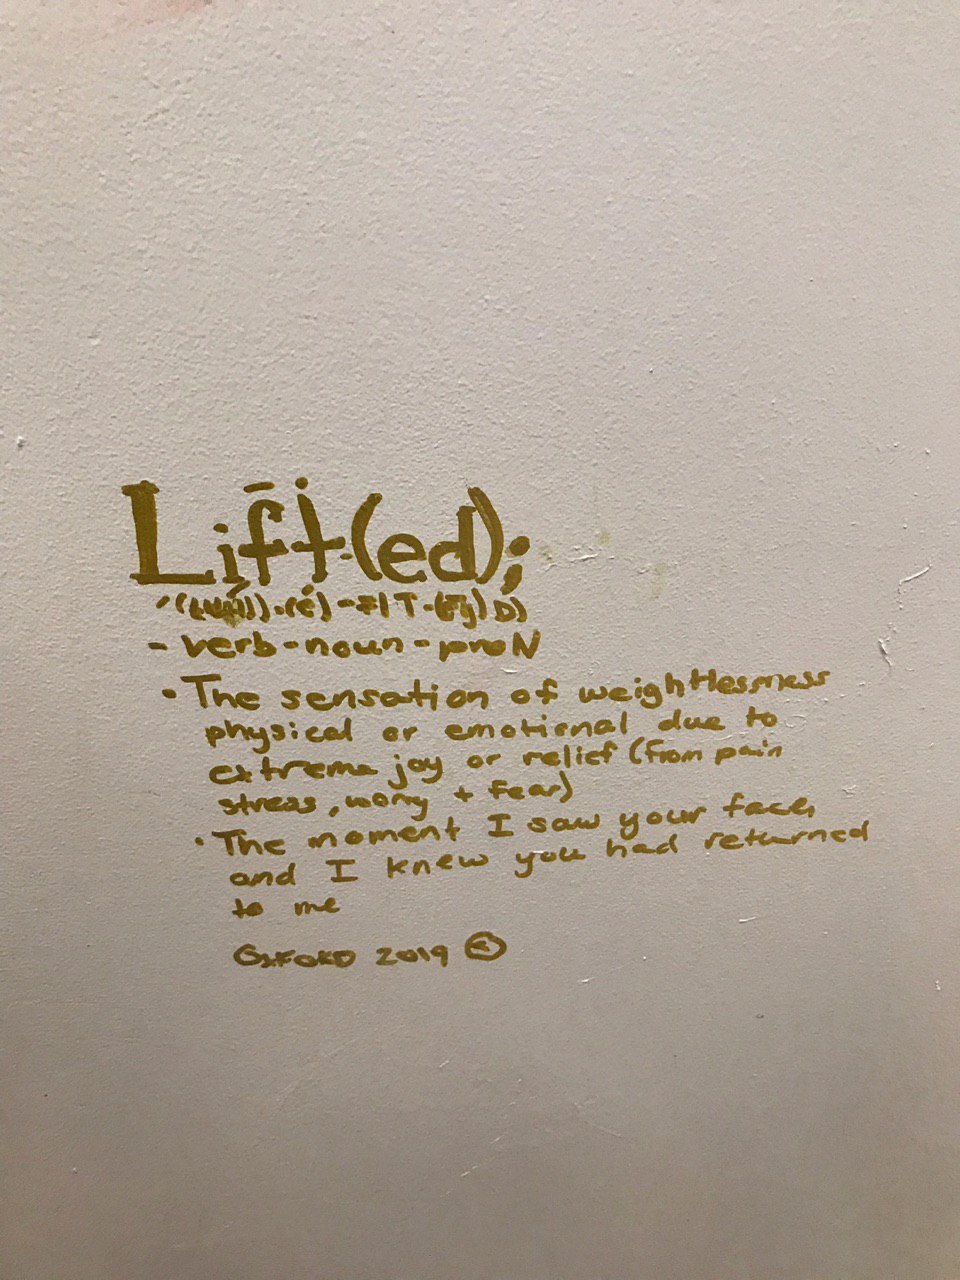 Lift(ed);
- verb-noun-proN
• The sensation of weightlessness
physical or emotional due to
extreme joy or relief (from pain
stress, worry + fear)
• The moment I saw your face,
and I knew you had returned
to me
2019 ©